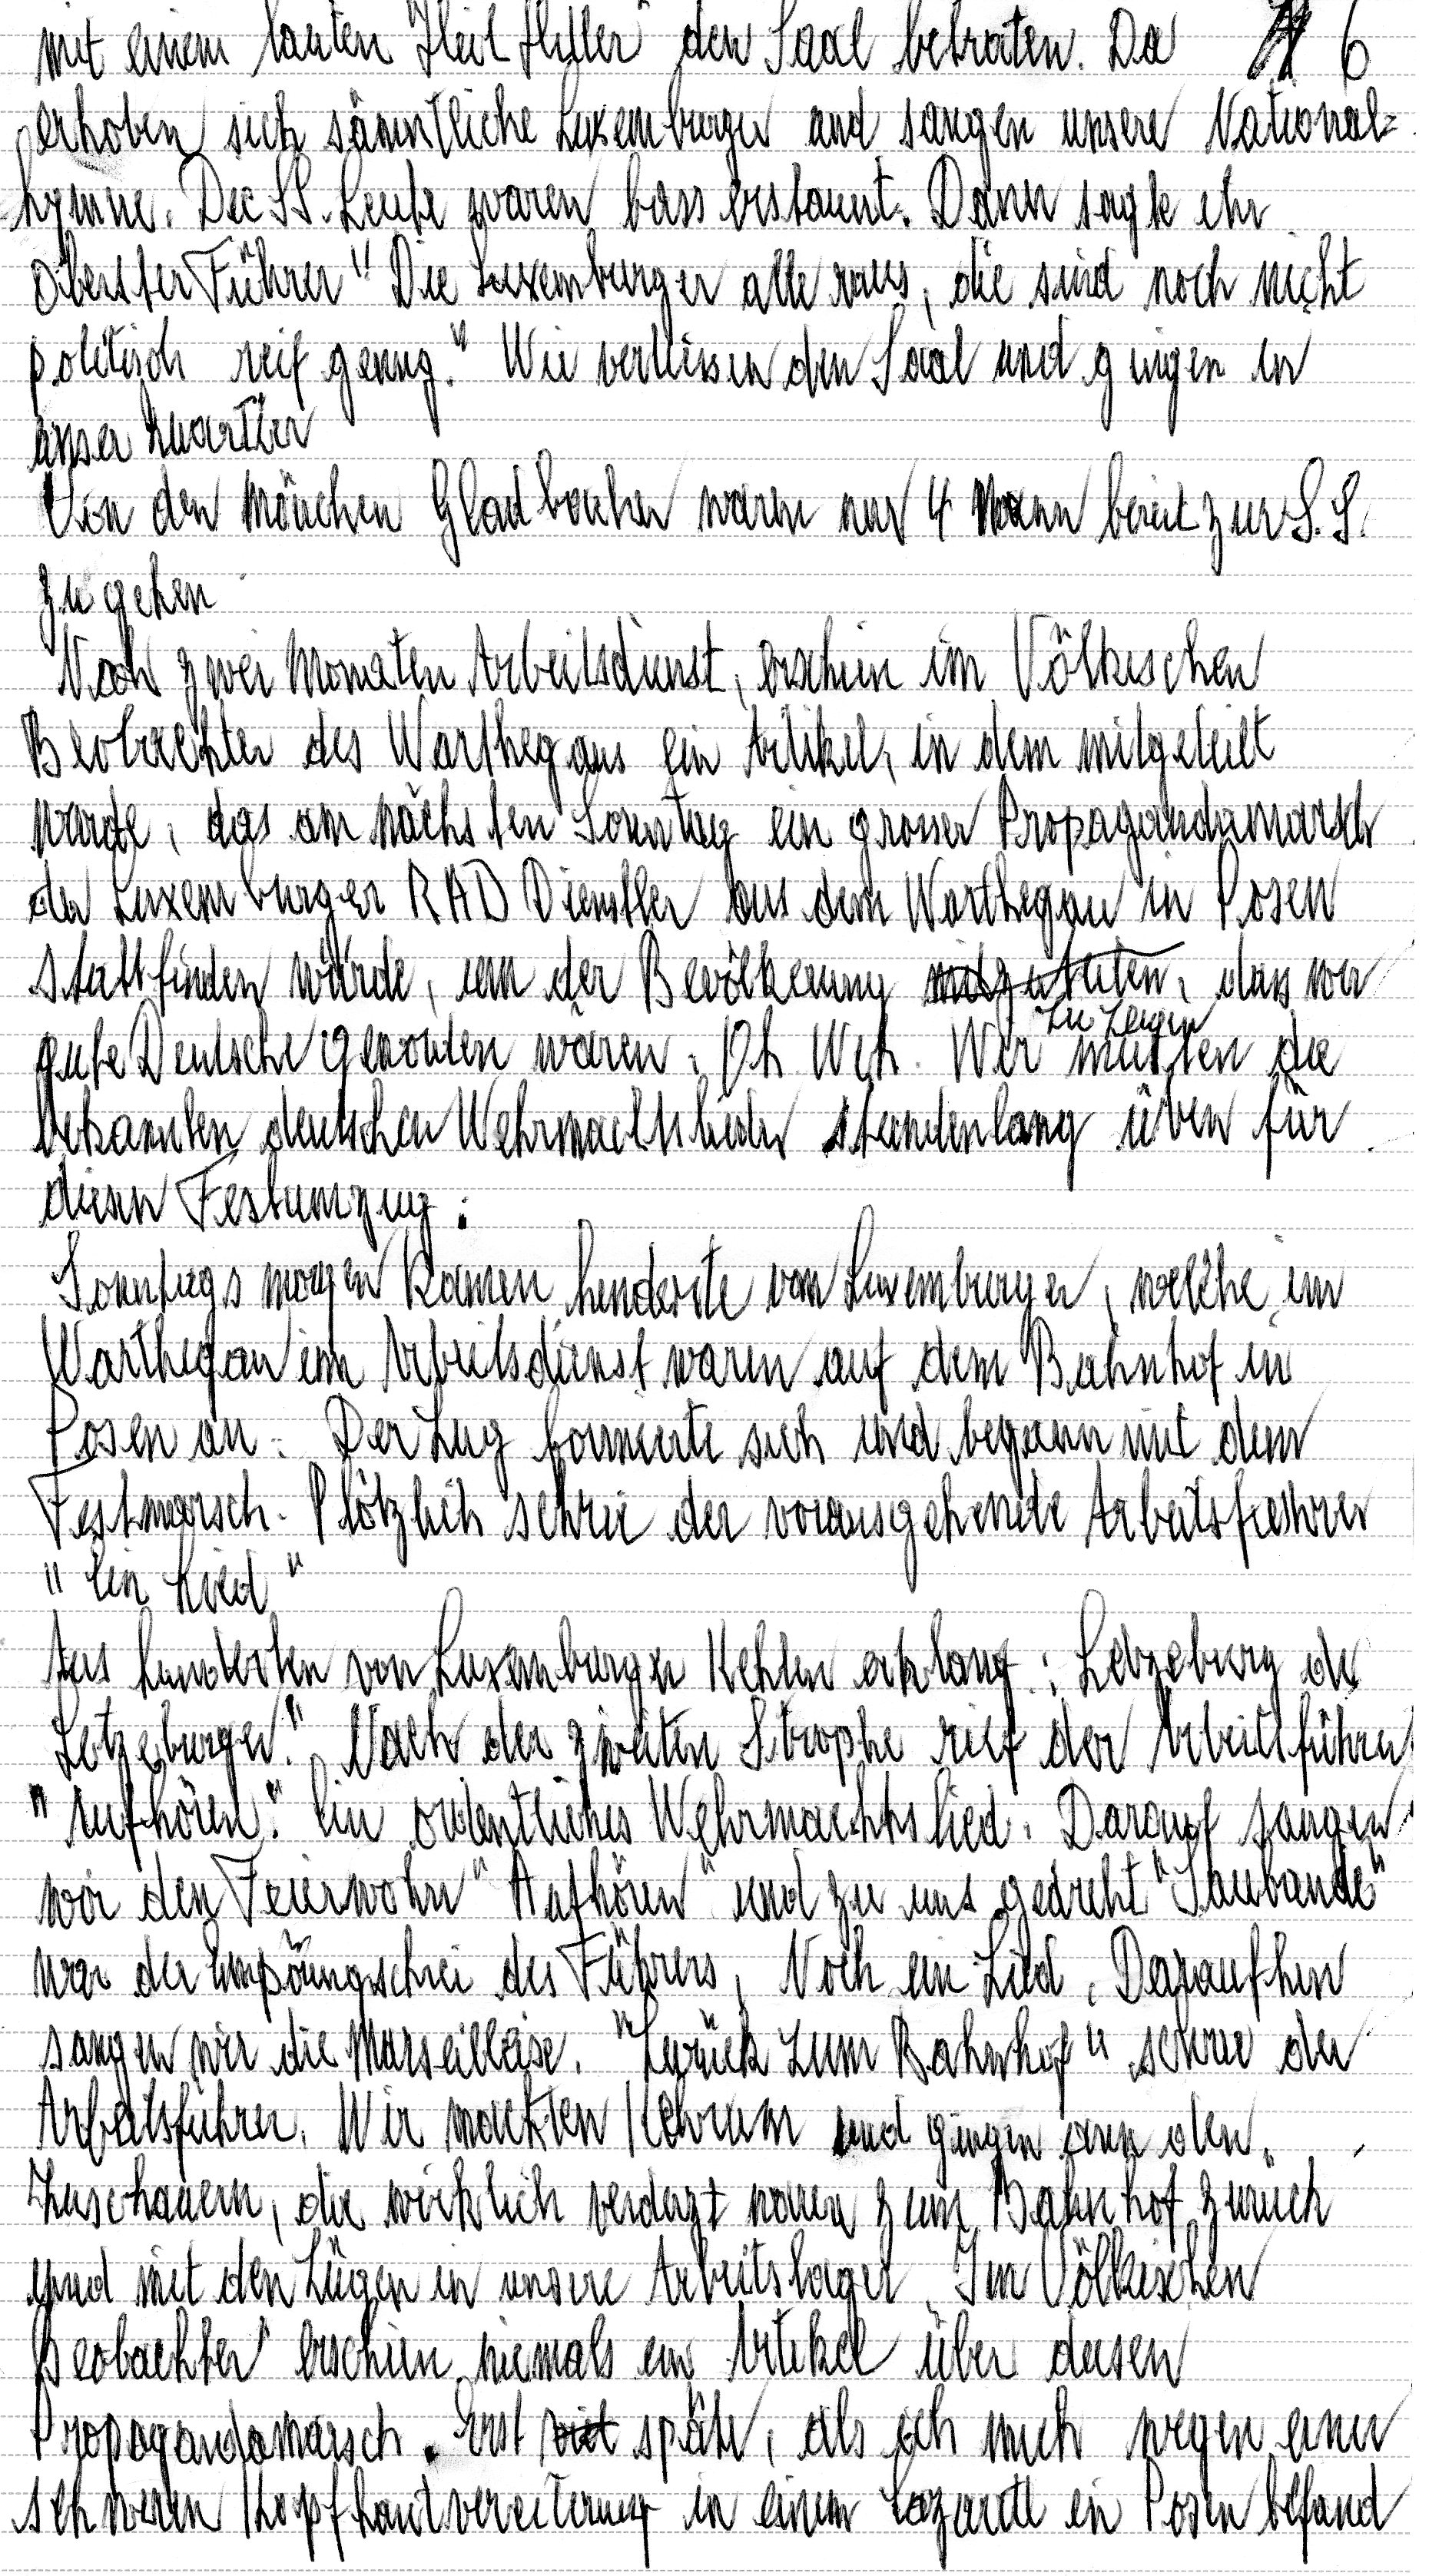 mit einem lauten "Heil Hitler" den Saal betraten. Da 6
erhoben sich sämmtliche Luxemburger und sangen unsere National=
hymne. Die SS. Leute waren bass erstaunt. Dann sagte ihr
oberster Führer "Die Luxemburger alle raus, die sind noch nicht
politisch reif genug." Wir verliessen den Saal und gingen in
unser Quartier
Von den Mönchen Gladbacher waren nur 4 Mann bereit zur S.S.
zu gehen
Nach zwei Monaten Arbeitsdienst, erschien im Völkischen
Beobachter des Warthegaus ein Artikel, in dem mitgeteilt
wurde, das am nächsten Sonntag ein grosser Propagandamarsch
der Luxemburger RAD Dienstler aus dem Warthegau in Posen
stattfinden würde, um der Bevölkerung zu zeigen, dass wir
gute Deutsche geworden wären. Oh Weh. Wir mussten die
bekannten deutschen Wehrmachtslieder stundenlang üben für
diesen Festumzug.
Sonntags morgen kamen hunderte von Luxemburger, welche im
Warthegau im Arbeitsdienst waren auf dem Bahnhof in
Posen an. Der Zug formierte sich und begann mit dem
Festmarsch. Plötzlich schrie der vorausgehende Arbeitsfuehrer
"Ein Lied"
Aus hunderten von Luxemburger Kehlen erklang: Letzeburg de
Letzeburger." Nach der zweiten Strophe rief der Arbeitsführer
"Aufhören." Ein ordentliches Wehrmachtslied. Darauf sangen
wir den Feierwohn "Aufhören" und zu uns gedreht "Saubande"
war der Empörungschrei des Führers, Noch ein Lied. Daraufhin
sangen wir die Marseillaise. "Zurück zum Bahnhof" schrie der
Arbeitsführer. Wir machten Kehrum und gingen an den
Zuschauern, die wirklich verduzt waren zum Bahnhof zurück
und mit den Zügen in unsere Arbeitslager. Im Völkischen
Beobachter erschien niemals ein Artikel über diesen
Propagandamarsch. Erst später, als ich mich wegen einer
schweren Kopfhautvereiterung in einem Lazarett in Posen befand